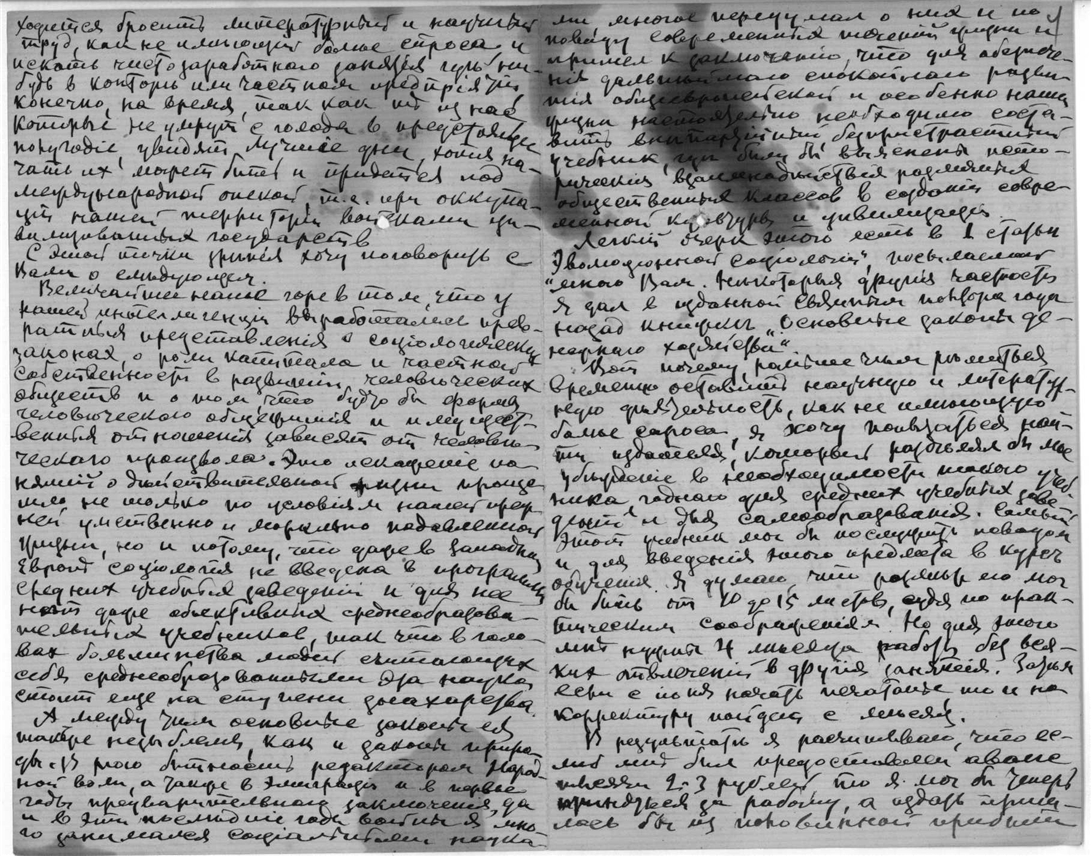 ходится бросить литературный и научный
труд, как не имеющий больше спроса и
искать чисто заработного занятія гдѣ ни-
будь в конторѣ или частном предпріятіи,
конечно, на время, так как тѣ из нас
который не умрут с голода в предстоящее
полугодіе, увидят лучшіе дни, хотя на-
чать их может быть и придется под
международной опекой, т.е. при оккупа-
ціи нашей территоріи войсками ци-
вилизованных государств
С этой точки зрѣнія хочу поговорить с
Вами о слѣдующем.
Величайшее наше горе в том, что у
нашей интеллигенціи выработались прев-
ратныя представленія о соціологических
законах, о роли капитала и частной
собственности в развитіи человѣческих
обществ и о том что будто бы форма
человѣческого общежитія и имущест-
венныя отношенія зависят от человѣ-
ческаго произвола. Это искаженіе по-
нятій о дѣйствительной жизни произо
шло не только по условіям нашей преж
ней умственно и морально подавленной
жизни, но и потому, что даже в Западной
Европѣ соціологія не введена в программы
средних учебных заведеній и для нее
нѣт даже объективных среднеобразова-
тельных учебников, так что в голо-
вах большинства людей считающих
себя среднеобразованными эта наука
стоит еще на ступени знахарства.
А между тѣм основные законы ея
также незыблемы, как и законы приро-
ды. В мою бытность редактором Народ-
ной воли, а также в эмиграціи и в первые
годы предварительного заключенія, да
и в эти послѣдніе годы войны я мно-
го занимался соціалистическими наука-
ми многое передумал о них и по
поводу современных теченій жизни и
пришел к заключенію, что для обезпече-
нія дальнѣйшаго спокойнаго разви-
тія общеевропейской и особенно нашей
жизни настоятельно необходимо соста-
вить внѣпартійный безпристрастный
учебник, гдѣ были бы выяснены исто-
рическія взаимодѣйствія различных
общественных классов в созданіи совре-
менной культуры и цивилизаціи.
Легкій очерк этого есть в 1 статьи
Эволюціонной соціологіи", посылаемой
"мною Вам. Нѣкоторыя другія частности
я дал в изданной Сытиным полтора года
назад книжкѣ „Основные законы де-
нежнаго хозяйства"
Вот почему, раньше чѣм рѣшиться
временно оставить научную и литератур-
ную дѣятельность, как не имѣющую
больше спроса, я хочу попытаться най-
ти издателя, который раздѣлял бы мое
убѣжденіе в необходимости такого учеб
ника годнаго для средних учебных заве-
деній и для самообразованія. Самый
этот учебник мог бы послужить поводом
и для введенія этого предмета в курс
обученія. Я думаю, что размѣр его мог
бы быть от 10 до 15 листов, судя по прак-
тическим соображеніям. Но для этого
мнѣ нужны 4 мѣсяца работы без вся-
ких отвлеченій в другія занятія. Затѣм
если с іюня начать печатаніе то и на
корректуру пойдет с мѣсяц.
В результатѣ я расчитываю, что ес-
либ мнѣ был предоставлен аванс
тысячи 2-3 рублей то я мог бы теперь
приняться за работу, а издать приш-
лось бы из половинной прибыли